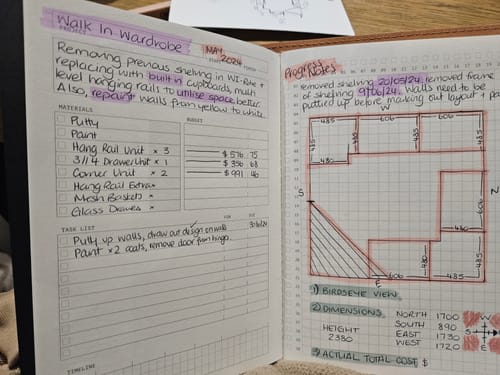 Walk In Wardrobe
PROJECT
MAY
2024
Removing previous shelving in WI-Robe +
replacing with built in cupboards, multi
level hanging rails to utilise space better.
Also, repaint walls from yellow to white.
MATERIALS
BUDGET
Putty
Paint
Hang Rail Unit × 3
$576.75
3/1/4 Drawer Unit × 1
$356.68
Corner Unit × 2
$991.96
Hang Rail Extra ×
Mesh Baskets ×
Glass Drawer ×
TASK LIST
FOR
DUE
Putty up walls, draw out design on walls
30/6/24
Paint ×2 coats, remove door from hinge.
TIMELINE
Progress
Notes
removed shelving 20/05/24, removed frame
of shelving 9/06/24. Walls need to be
puttied up before marking out layout +
W
485
606
485
485
480
S
N
606
485
480
485
606
485
E
1) BIRDSEYE VIEW
2) DIMENSIONS
HEIGHT
2380
NORTH 1700
SOUTH 890
EAST 1730
WEST 1720
W
S
N
E
3) ACTUAL TOTAL COST $